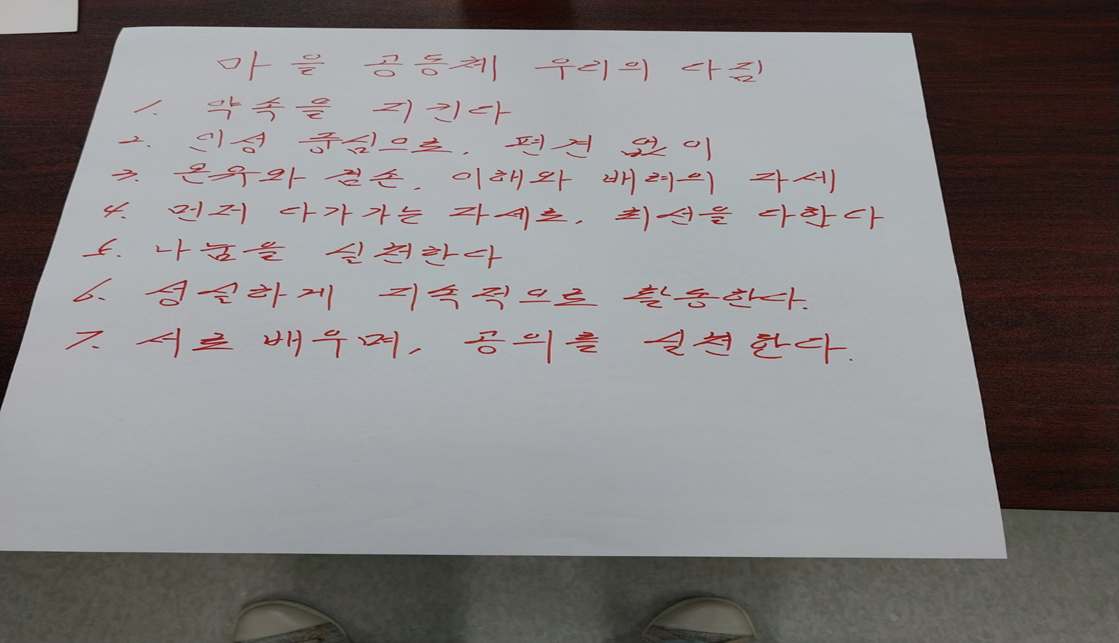 마을 공동체 우리의 다짐
1. 약속을 지킨다
2. 인성 중심으로, 편견 없이
3. 온유와 겸손, 이해와 배려의 자세
4. 먼저 다가가는 자세로, 최선을 다한다
5. 나눔을 실천한다
6. 성실하게 지속적으로 활동한다.
7. 서로 배우며, 공의를 실천한다.